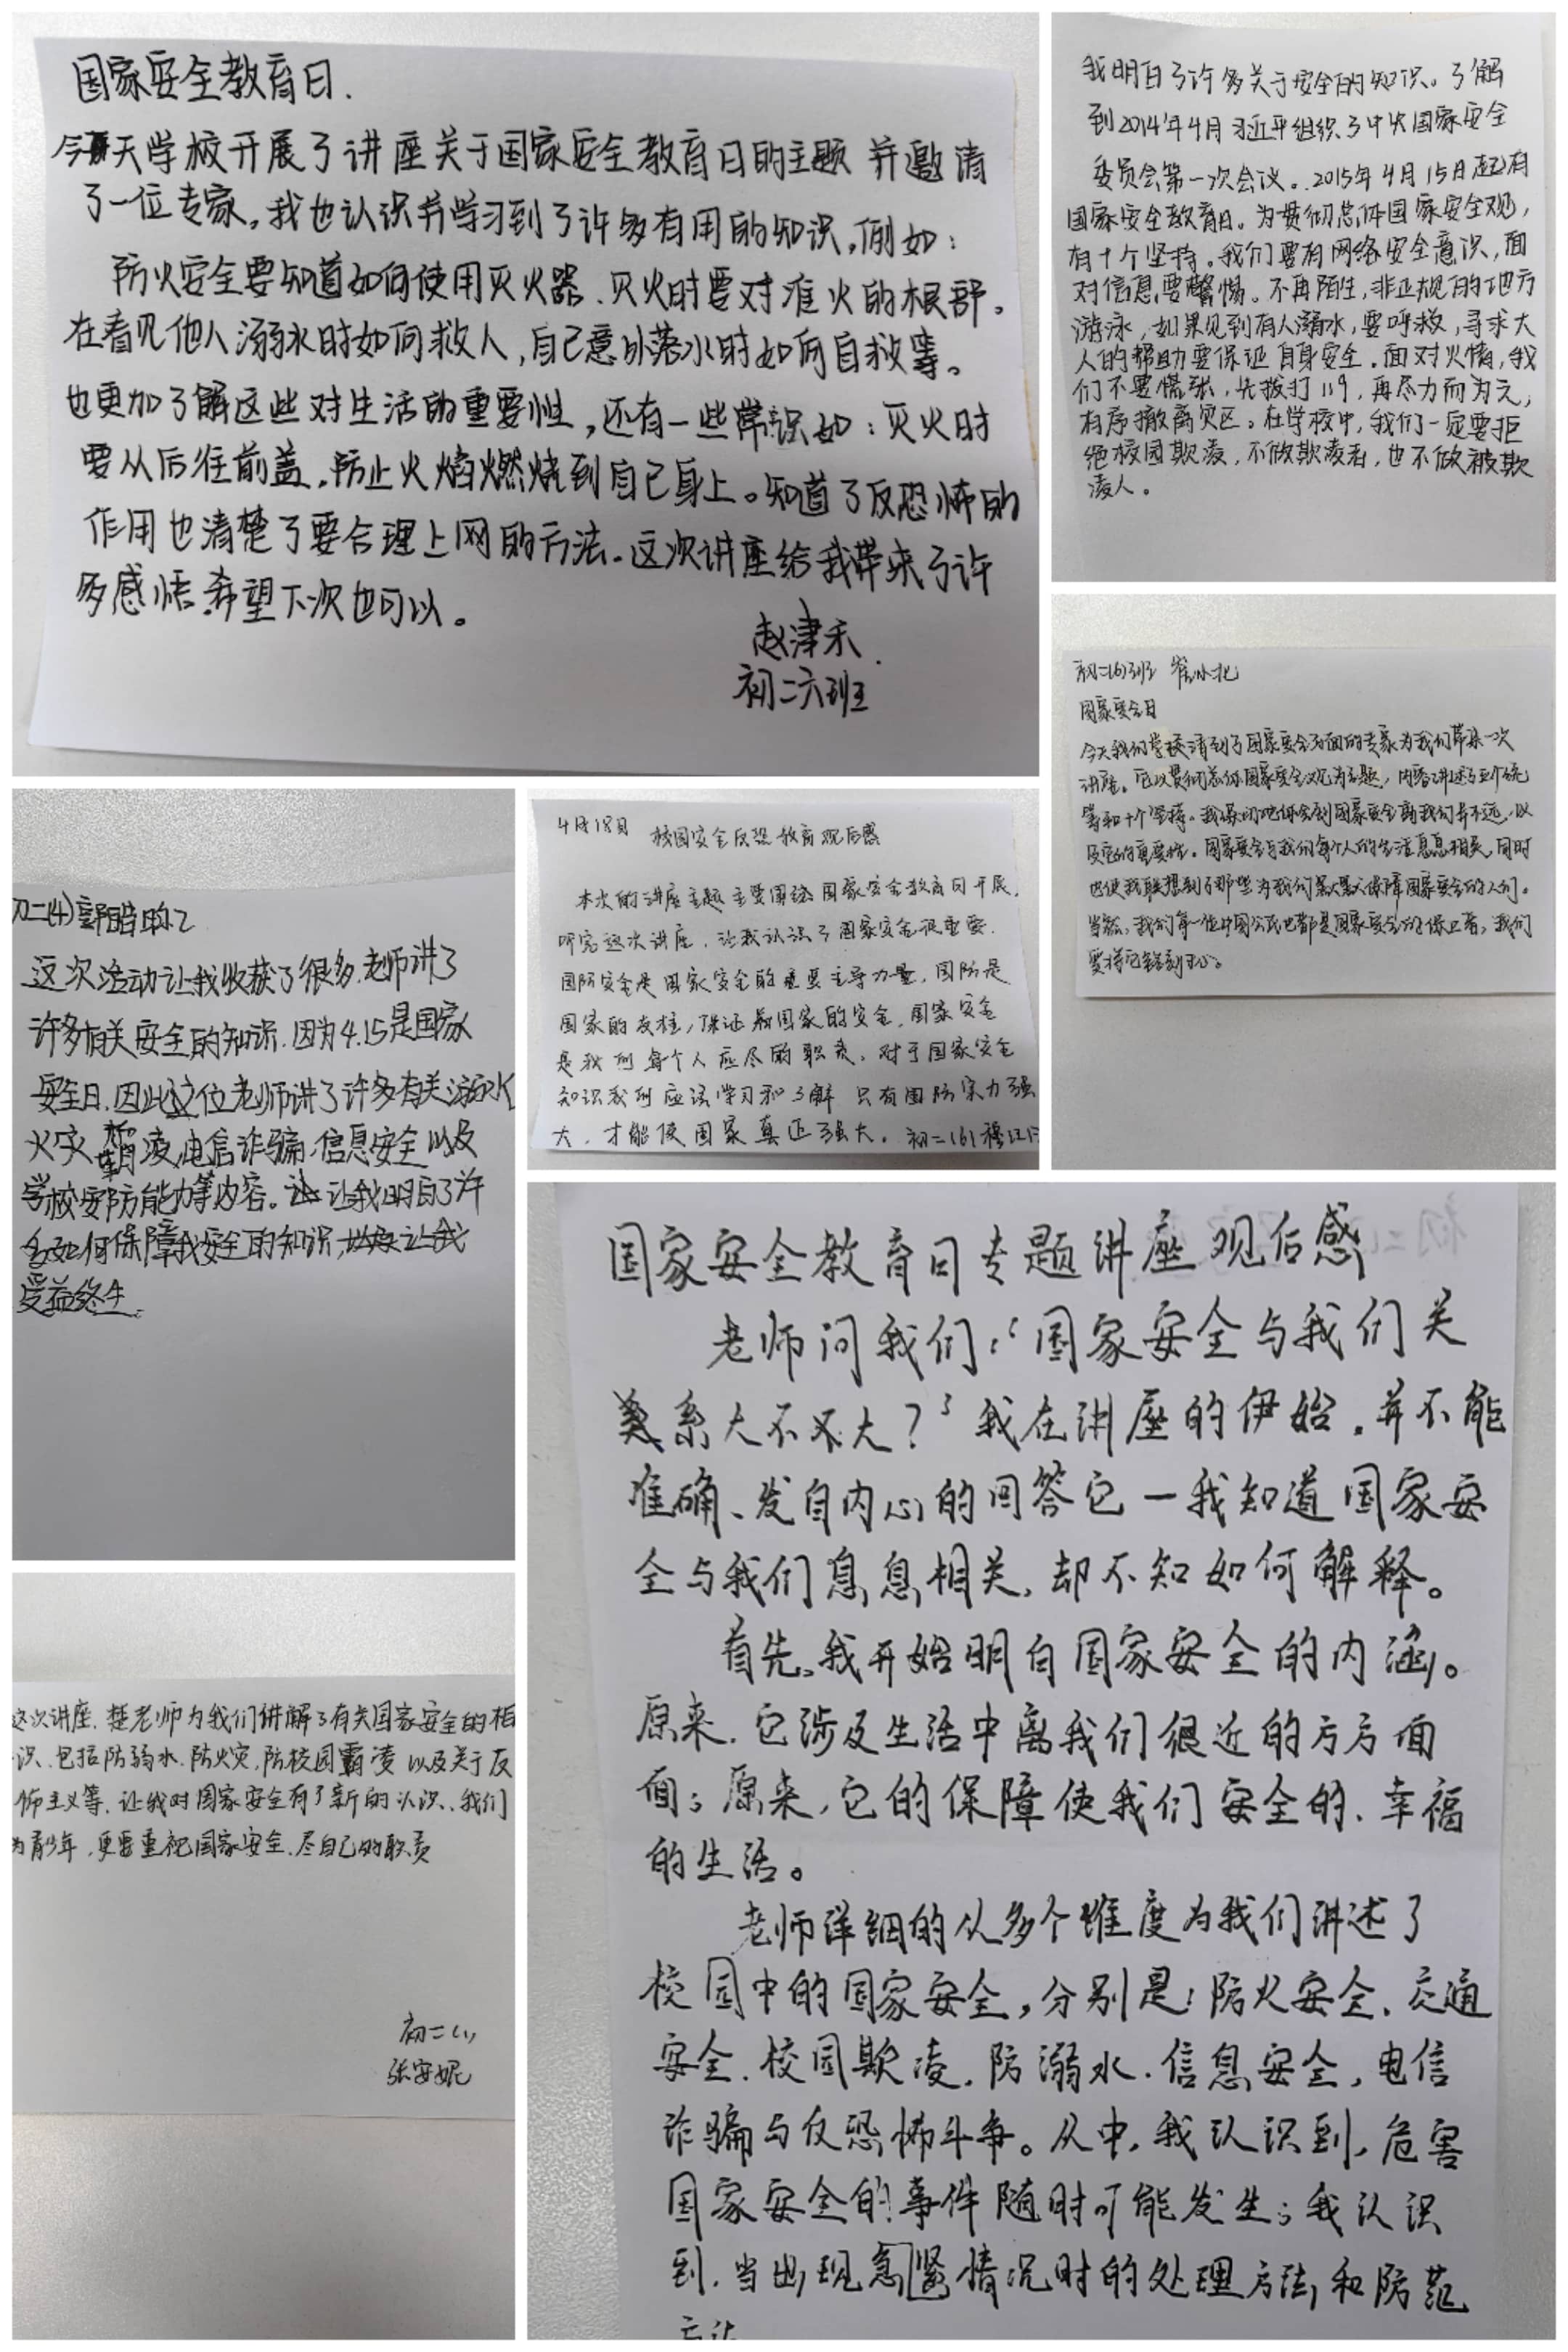 国家安全教育日.
今天学校开展了讲座关于国家安全教育日的主题 并邀请
了一位专家,我也认识并学习到了许多有用的知识,例如:
防火安全要知道如何使用灭火器、灭火时要对准火的根部。
在看见他人溺水时如何救人,自己意外落水时如何自救等。
也更加了解这些对生活的重要性,还有一些常识如:灭火时
要从后往前盖,防止火焰燃烧到自己身上。知道了反恐怖的
作用也清楚了要合理上网的方法.这次讲座给我带来了许
多感悟.希望下次也可以。
赵津禾.
初二六班
我明白了许多关于安全的知识。了解
到2014年4月习近平组织了中央国家安全
委员会第一次会议。2015年4月15日起有
国家安全教育日。为贯彻总体国家安全观,
有十个坚持。我们要有网络安全意识,面
对信息要警惕。不再陌生,非正规的地方
游泳,如果见到有人溺水,要呼救,寻求大
人的帮助要保证自身安全.面对火情,我
们不要慌张,先拨打119,再尽力而为之,
有序撤离灾区。在学校中,我们一定要拒
绝校园欺凌,不做欺凌者,也不做被欺
凌人。
初二(6)班
国家安全日
今天我们学校请到了国家安全方面的专家为我们带来一次
讲座。它以贯彻总体国家安全观为主题,内容讲述了五个统
筹和十个坚持。我深切地体会到国家安全离我们并不远,以
及它的重要性。国家安全与我们每个人的生活息息相关,同时
也使我联想到了那些为我们默默保障国家安全的人们。
当然,我们每一位中国公民也都是国家安全的保卫者,我们
要将它铭刻于心。
初二(4)
这次活动让我收获了很多.老师讲了
许多有关安全的知识.因为4.15是国家
安全日.因此这位老师讲了许多有关溺水
火灾 霸凌,电信诈骗.信息安全以及
学校安防能力等内容。让我明白了许
多如何保障我安全的知识,让我
受益终生.
4月18日 校园安全反恐教育观后感
本次的讲座主题主要围绕国家安全教育日开展.
听完这次讲座,让我认识了国家安全很重要.
国防安全是国家安全的重要主导力量,国防是
国家的支柱,保证着国家的安全.国家安全
是我们每个人应尽的职责,对于国家安全
知识我们应该学习和了解 只有国防实力强
大,才能使国家真正强大。初二(6)穆
这次讲座.楚老师为我们讲解了有关国家安全的相
识.包括防溺水.防火灾,防校园霸凌 以及关于反
怖主义等.让我对国家安全有了新的认识、我们
为青少年,更要重视国家安全.尽自己的职责
初二(1)
张安妮
国家安全教育日专题讲座观后感
老师问我们:“国家安全与我们关
系大不不大?”我在讲座的伊始,并不能
准确、发自内心的回答它—我知道国家安
全与我们息息相关,却不知如何解释。
首先,我开始明白国家安全的内涵。
原来,它涉及生活中离我们很近的方方面
面;原来,它的保障使我们安全的、幸福
的生活。
老师详细的从多个维度为我们讲述了
校园中的国家安全,分别是:防火安全、交通
安全、校园欺凌、防溺水、信息安全,电信
诈骗与反恐怖斗争。从中,我认识到,危害
国家安全的事件随时可能发生;我认识
到,当出现急紧情况时的处理方法和防范